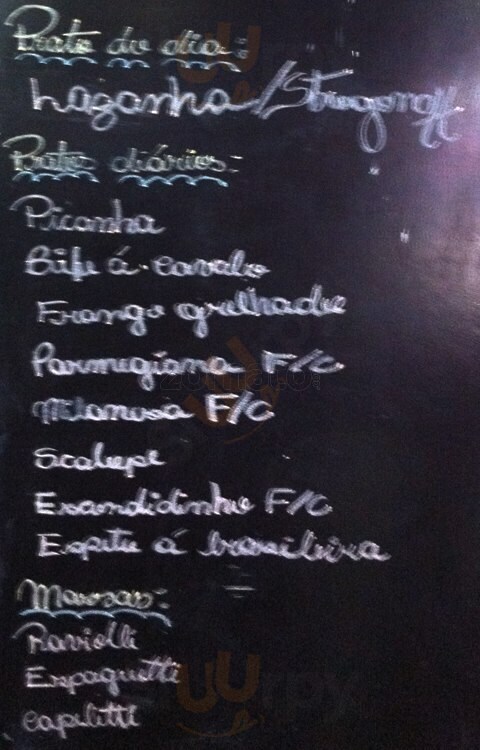 Prato do dia:
Lazanha/Strogonoff
Pratos diários:
Picanha
Bife á cavalo
Frango grelhado
Parmegiana F/C
Milanesa F/C
Scalope
Escondidinho F/C
Espeto á brasileira
Massas:
Raviolli
Espaguetti
Capeletti